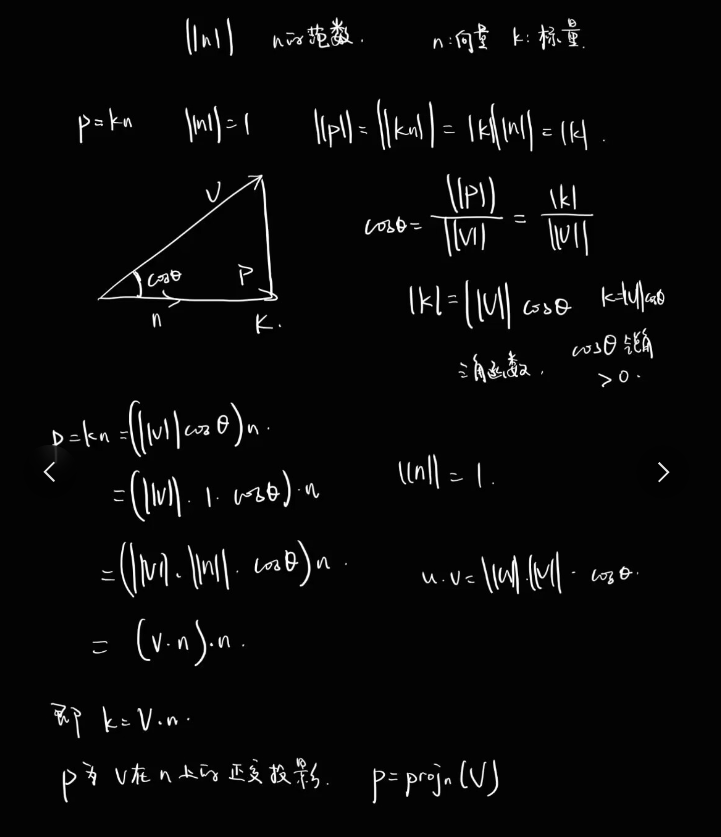 ||n|| n的范数. n:向量 k:标量.
p=kn ||n||=1 ||p||=||kn||=|k|||n||=|k|.
V
cosθ
P
n
K.
cosθ= ||p||/||V|| = |k|/||V||
|k|=||V|| cosθ k=||v||cosθ
三角函数. cosθ 锐角
>0.
p=kn=(||v||cosθ)n.
=(||v||·1·cosθ)·n ||n||=1.
=(||v||·||n||·cosθ)n. u·v=||u||·||v||·cosθ.
=(v·n)·n.
即 k=V·n.
p为 v在n上的正交投影. p=projn(V)